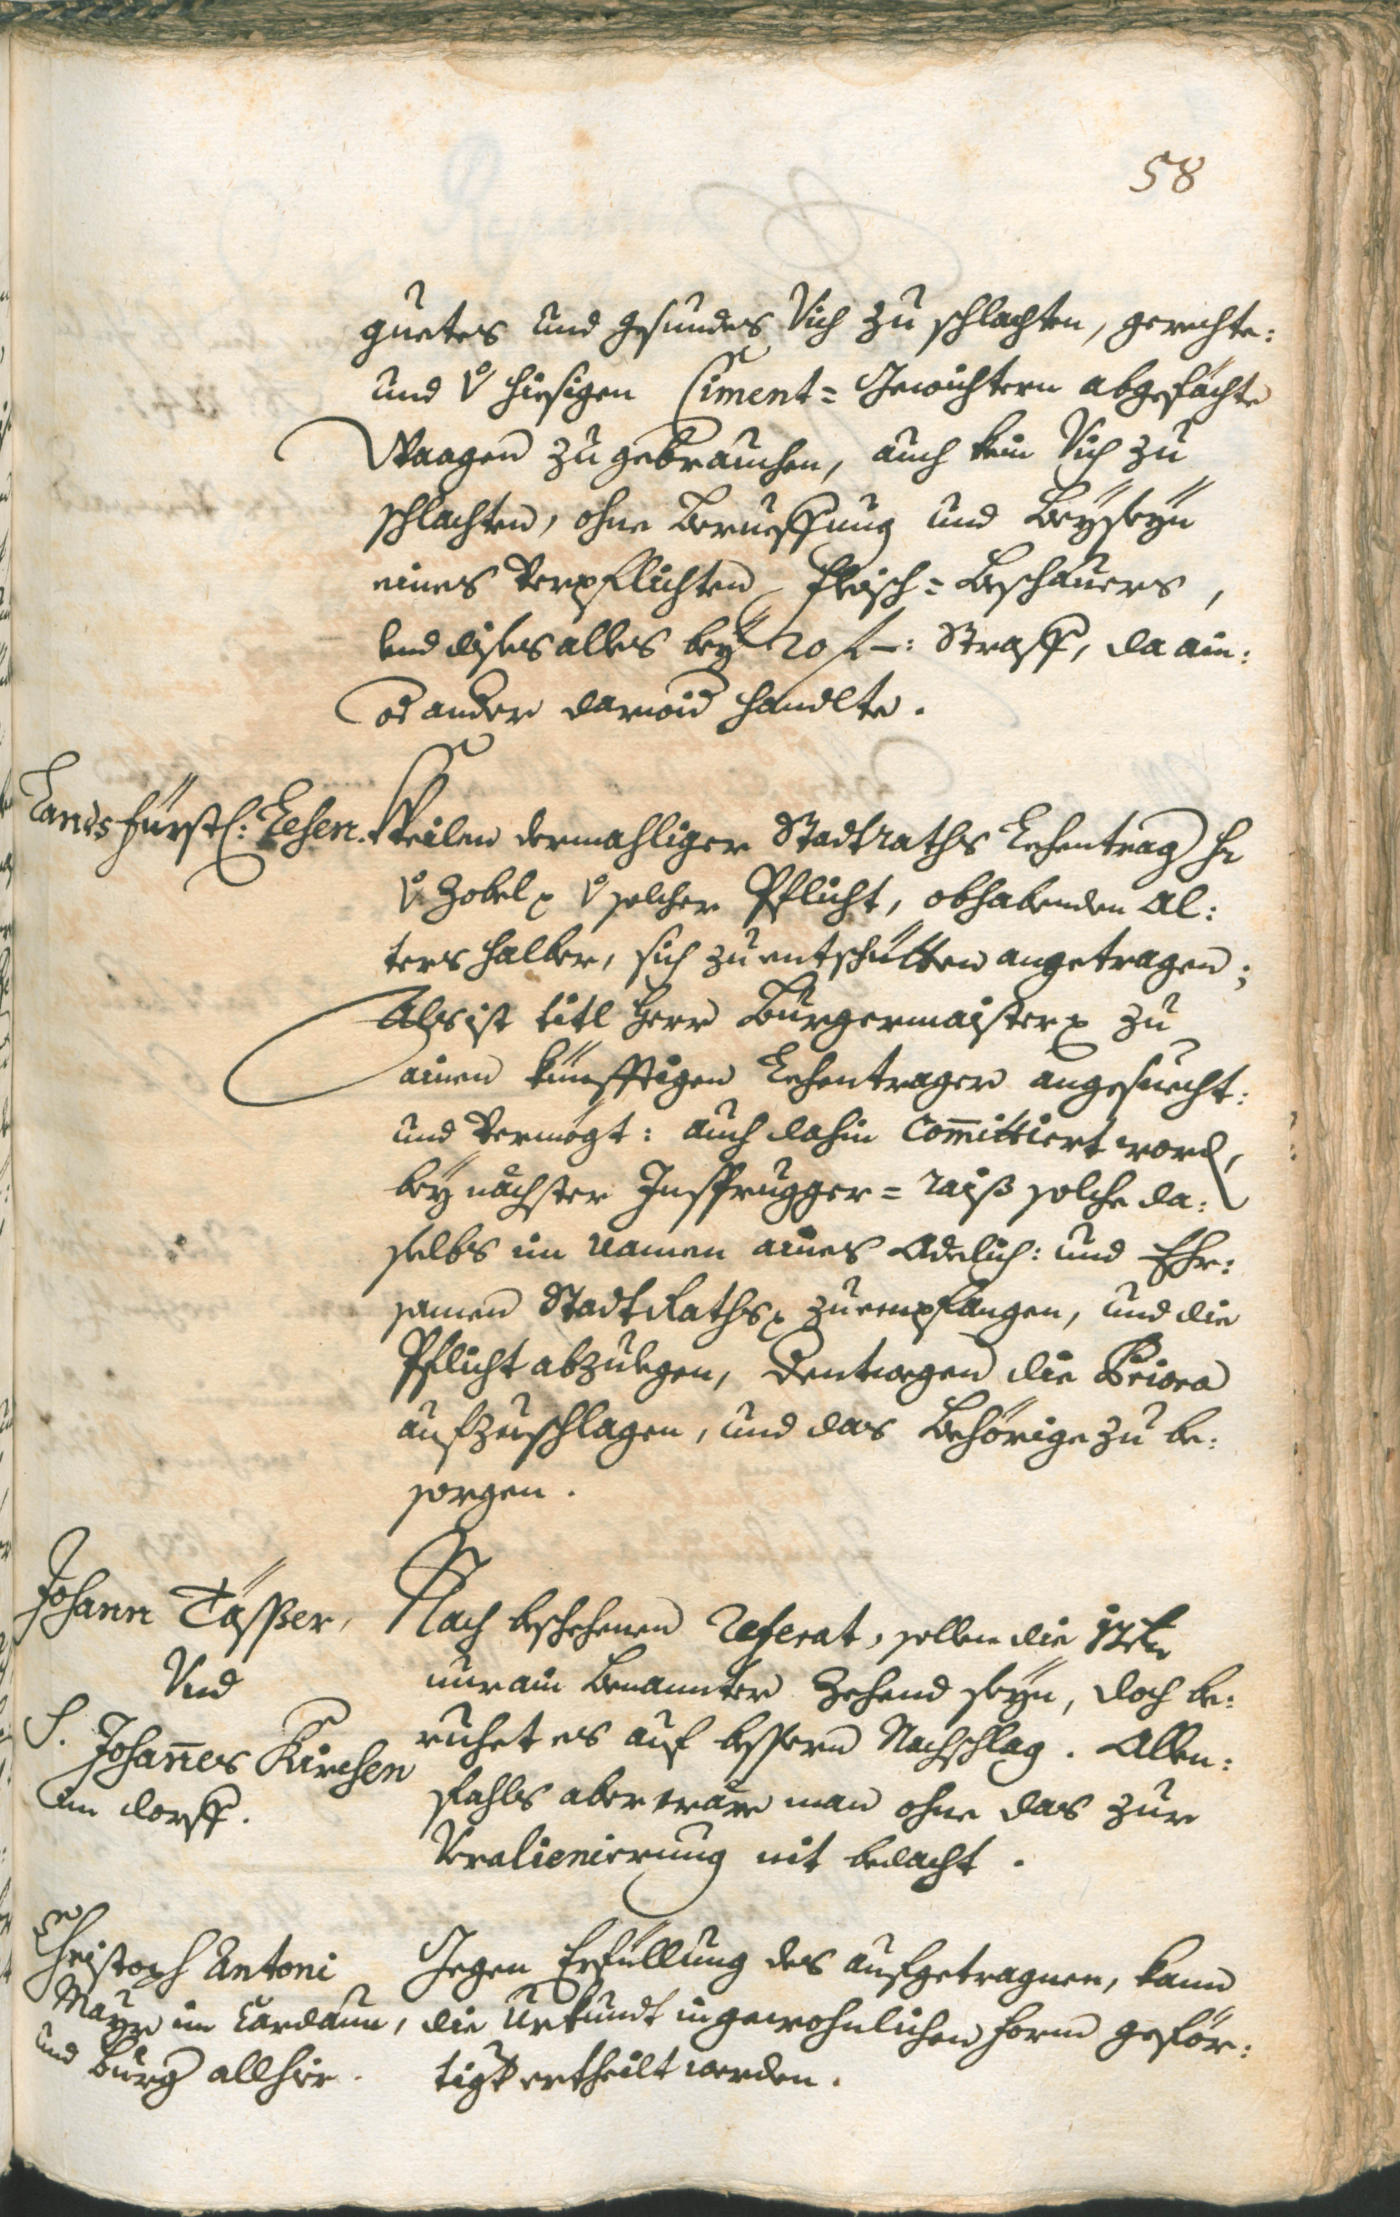 58
guetes und gesundes Vich zu schlachten, gerechte:
und v hiesigen Ciment= Gewichtern abgefächte
Waagen zu gebrauchen, auch kein Vich zu
schlachten, ohne Berueffung und Beÿseÿn
eines Verpflichten Fleisch= Beschauers,
und dises alles beÿ 20 f –: Straff, da ain:
od ander darwid handlte.
Landsfürstl: Lehen.
Weilen dermahliger Stadtraths Lehentrag H
v Zobel v solcher Pflicht, obhabenden Al:
ters halber, sich zu entschütten angetragen;
Als ist titl Herr Burgermaister zu
ainen künfftigen Lehentrager angesuecht:
und Vermögt: auch dahin Com̄ittiert word,
beÿ nächster Insprugger= raiß solche da:
selbs im Namen aines Adelich: und Ehr:
samen Stadt Raths zu empfangen, und die
Pflicht abzulegen, dentwegen die Priora
aufzuschlagen, und das Behörige zu be:
sorgen.
Johann Täsßer,
Vnd
S. Johan̄es Kirchen
im dorff.
Nach beschehenen Referat, sollen die
nur ain Benannter Zehend seÿn, doch be:
ruhet es auf bessern Nachschlag. Allen:
fahls aber wäre man ohne das zur
Veralienierung nit bedacht.
Christoph Antoni
Mayr im Cardaun,
und Burg allhier.
Gegen Erfüllung des aufgetragnen, kann
die Urkundt in gewohnlichen Form geför:
tigt ertheilt werden.